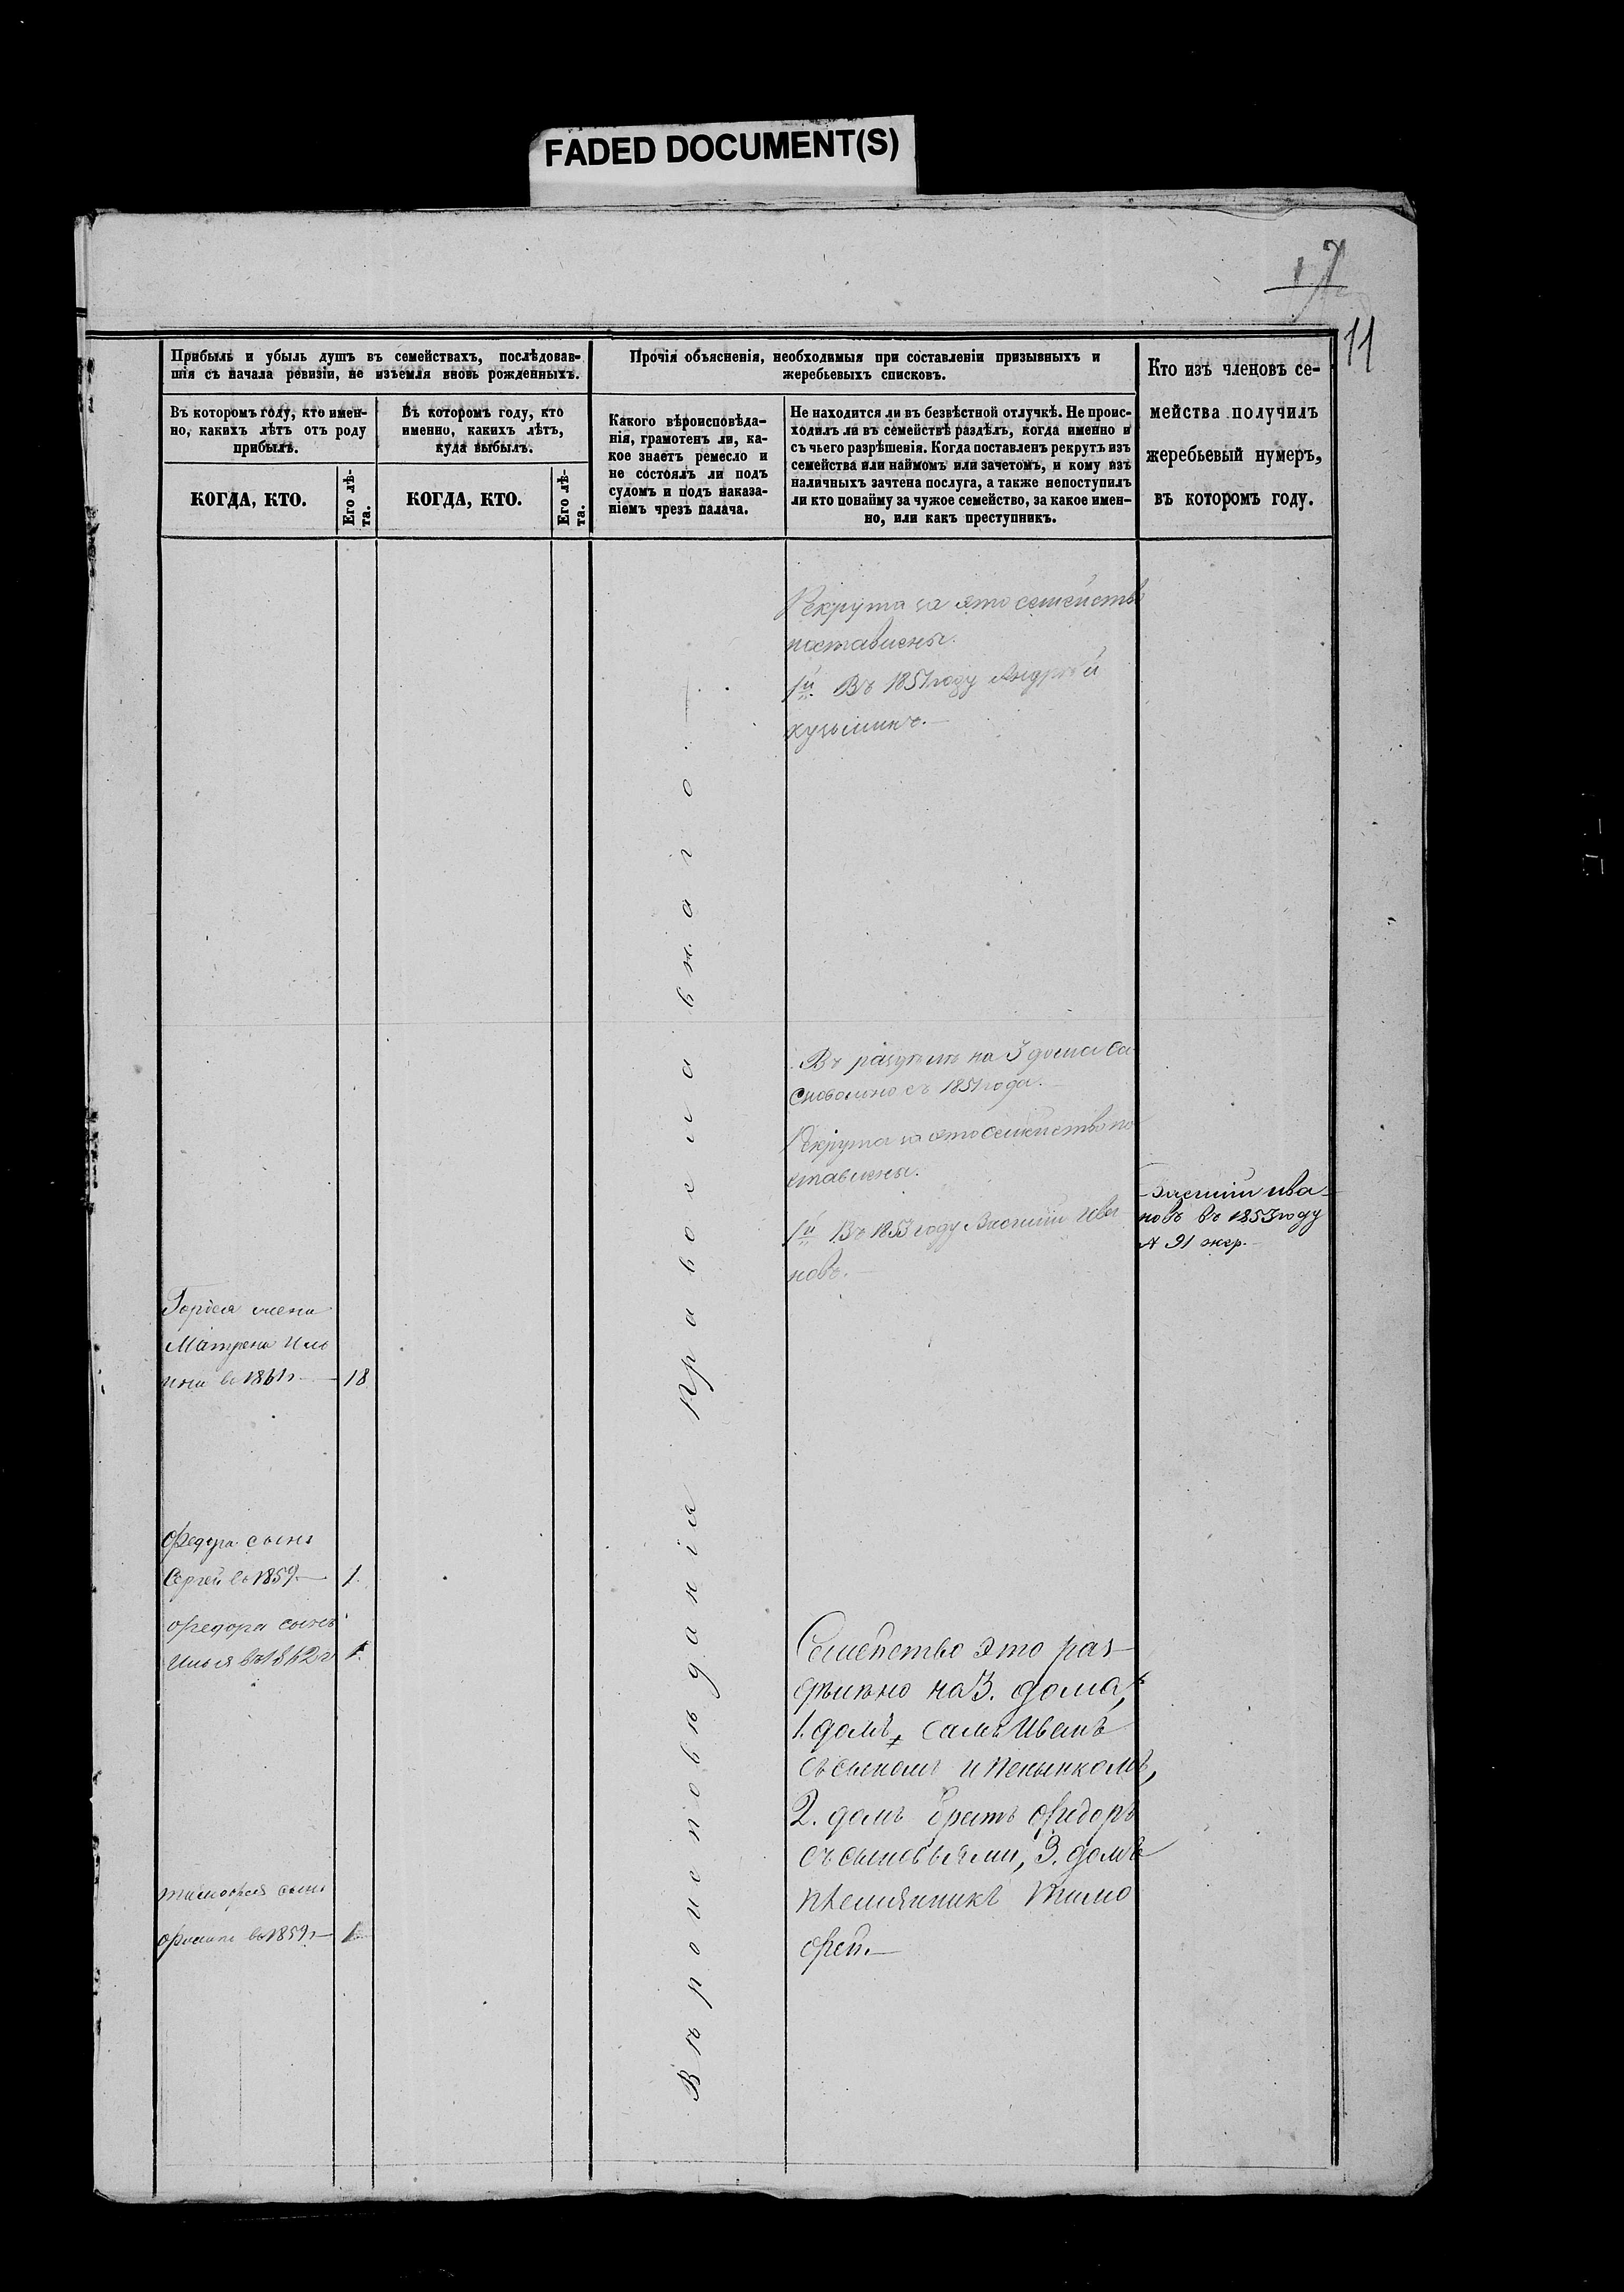 FADED DOCUMENT(S)
17
11
Прибыль и убыль душъ въ семействахъ, послѣдовав-
шія съ начала ревизіи, не изъемля вновь рожденныхъ.
Въ которомъ году, кто имен-
но, какихъ лѣтъ отъ роду
прибылъ.
КОГДА, КТО.
Его лѣ-
та.
Въ которомъ году, кто
именно, какихъ лѣтъ,
куда выбылъ.
КОГДА, КТО.
Его лѣ-
та.
Прочія объясненія, необходимыя при составленіи призывныхъ и
жеребьевыхъ списковъ.
Какого вѣроисповѣда-
нія, грамотенъ ли, ка-
кое знаетъ ремесло и
не состоялъ ли подъ
судомъ и подъ наказа-
ніемъ чрезъ палача.
Не находится ли въ безвѣстной отлучкѣ. Не проис-
ходилъ ли въ семействѣ раздѣлъ, когда именно и
съ чьего разрѣшенія. Когда поставленъ рекрутъ изъ
семейства или наймомъ или зачетомъ, и кому изъ
наличныхъ зачтена послуга, а также непоступилъ
ли кто понайму за чужое семейство, за какое имен-
но, или какъ преступникъ.
Кто изъ членовъ се-
мейства получилъ
жеребьевый нумеръ,
въ которомъ году.
Рекрута за это семейство
поставлены.
1й Въ 1851 году Андрей
Кузьминъ.—
Въ раздѣлѣ на 3 дома са
мовольно съ 1851 года.
Рекрута за это семейство по
ставлены.
1й Въ 1853 году Василій Ива
новъ.—
Василій Ива
новъ въ 1853 году
№ 91 жер.
Гордея жена
Матрена Иль
ина въ 1861 г — 18
Федора сынъ
Сергей въ 1859 — 1.
Федора сынъ
Илья въ 1862 г 1.
Тимофея сынъ
Филипъ въ 1859 г — 1
Вѣроисповѣданія Православнаго.—
Семейство это раз-
дѣлено на 3. дома,
1. домъ, самъ Иванъ
съ сыномъ и пасынкомъ,
2. домъ братъ Федоръ
съ сыновьями, 3. домъ
племянникъ Тимо
фей.—